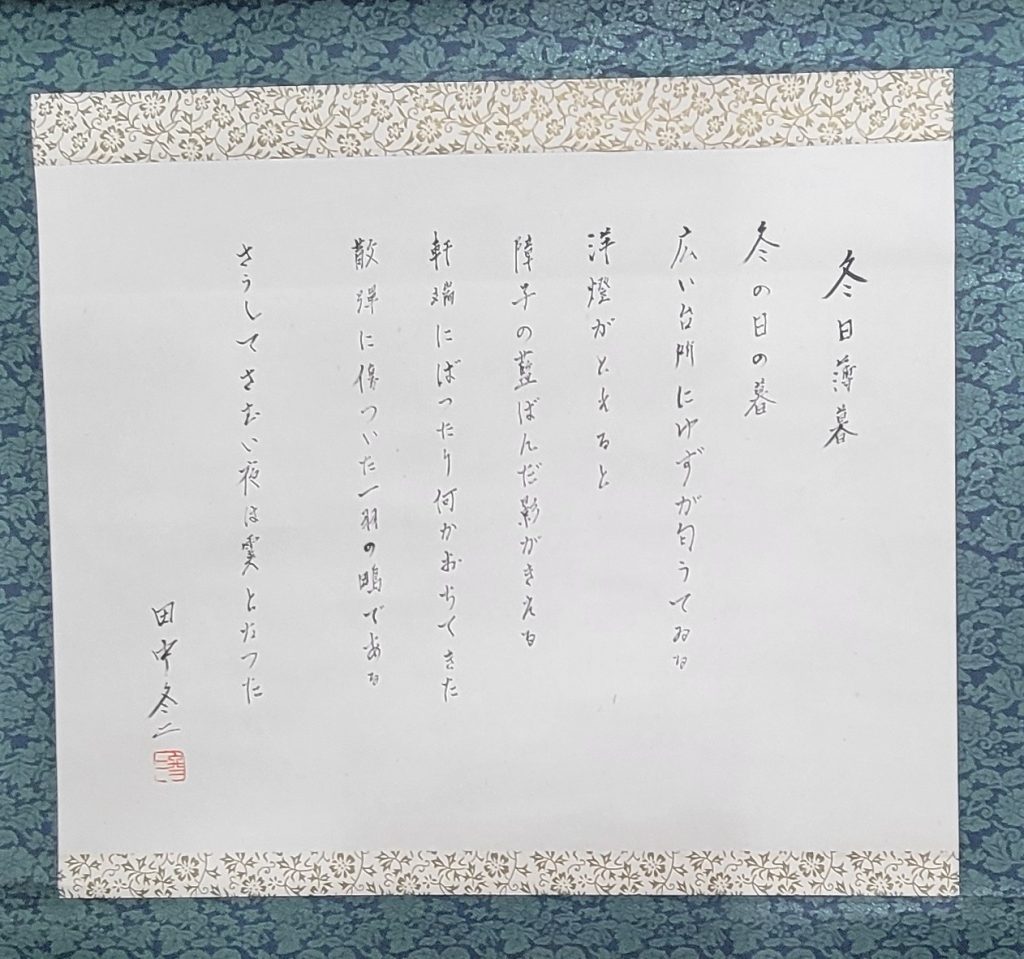 冬日薄暮
冬の日の暮
広い台所にゆずが匂うてゐる
洋燈がともると
障子の藍ばんだ影がきえる
軒端にばつたり何かおちてきた
散弾に傷ついた一羽の鴫である
さうしてさむい夜は霙となつた
田中冬二